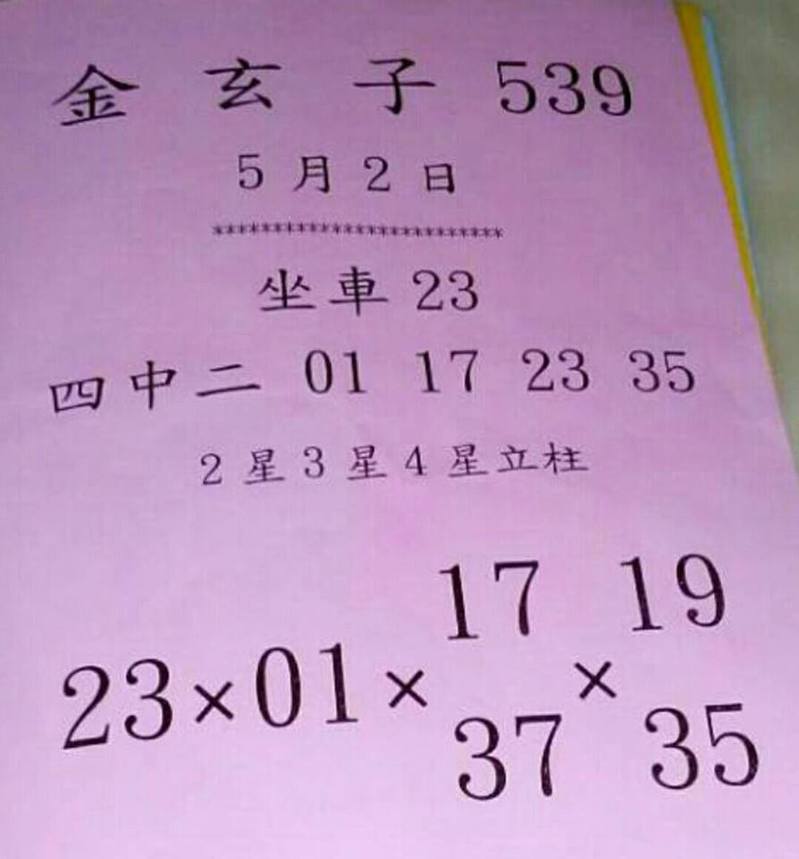 金玄子 539
5月2日
*************************
坐車 23
四中二 01 17 23 35
2星3星4星立柱
17 19
23×01× ×
37 35